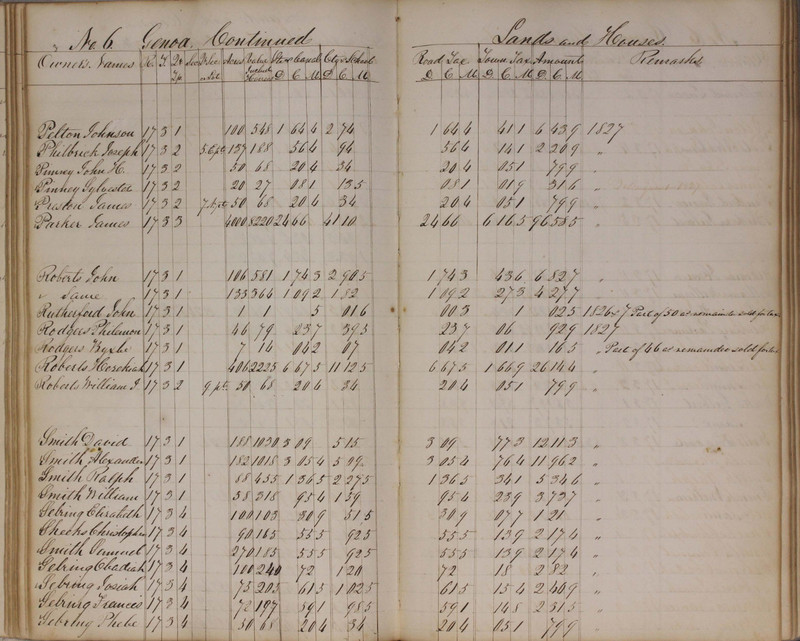 No. 6. Genoa. Continued Lands and Houses.
Owners Names R. T. Qr Tp Acres Value Houses State & Canal D C M Cty & School D C M Road Tax D C M Town Tax D C M Amount D C M Remarks
Pelton Johnson 17 3 1 100 548 1 64 4 2 74 1 64 4 41 1 6 43 9 1827
Philbrick Joseph 17 3 2 137 188 56 4 94 56 4 14 1 2 20 9 "
Pinney John H. 17 3 2 50 68 20 4 34 20 4 05 1 79 9 "
Pinney Sylvester 17 3 2 20 27 08 1 13 5 08 1 01 9 31 6 "
Preston James 17 3 2 7. pt 50 68 20 4 34 20 4 05 1 79 9 "
Parker James 17 3 3 4000 8220 24 66 41 10 24 66 6 16 5 96 58 5 "
Roberts John 17 3 1 106 581 1 74 3 2 90 5 1 74 3 43 6 6 82 7 "
" Same 17 3 1 133 364 1 09 2 1 82 1 09 2 27 3 4 27 7 "
Rutherford John 17 3 1 1 1 5 01 6 00 3 1 02 5 1826 & 7 Part of 50 as remainder sold for tax
Rodgers Philemon 17 3 1 46 79 23 7 39 5 23 7 06 92 9 1827
Rodgers 17 3 1 7 14 04 2 07 04 2 01 1 16 5 " Part of 46 as remainder sold for tax
Roberts Hezekiah 17 3 1 406 2225 6 67 5 11 12 5 6 67 5 1 66 9 26 14 4 "
Roberts William 17 3 2 9 pt 50 68 20 4 34 20 4 05 1 79 9 "
Smith David 17 3 1 188 1030 3 09 5 15 3 09 77 3 12 11 3 "
Smith Alexander 17 3 1 182 1018 3 05 4 5 09 3 05 4 76 4 11 96 2 "
Smith Ralph 17 3 1 88 455 1 36 5 2 27 5 1 36 5 34 1 5 34 6 "
Smith William 17 3 1 58 318 95 4 1 59 95 4 23 9 3 73 7 "
Sebring Elizabeth 17 3 4 100 103 30 9 51 5 30 9 07 7 1 21 "
Sheeks Christopher 17 3 4 90 185 55 5 92 5 55 5 13 9 2 17 4 "
Smith 17 3 4 270 185 55 5 92 5 55 5 13 9 2 17 4 "
Sebring Obadiah 17 3 4 100 240 72 1 20 72 18 2 82 "
Sebring Josiah 17 3 4 75 205 61 5 1 02 5 61 5 15 4 2 40 9 "
Sebring Frances 17 3 4 72 197 59 1 98 5 59 1 14 8 2 31 5 "
Sebring Phebe 17 3 4 50 68 20 4 34 20 4 05 1 79 9 "